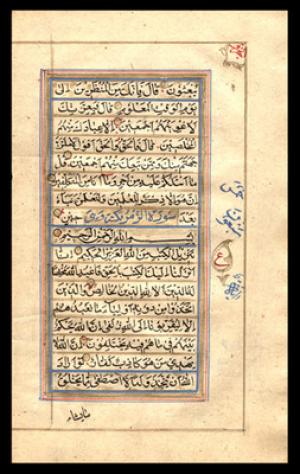 يبعثون قال فانك من المنظرين الى
يوم الوقت المعلوم قال فبعزتك
لاغوينهم اجمعين الا عبادك منهم
المخلصين قال فالحق والحق اقول لاملئن
جهنم منك وممن تبعك منهم اجمعين قل
ما اسئلكم عليه من اجر وما انا من المتكلفين
ان هو الا ذكر للعلمين ولتعلمن نباه
بعد حين سورة الزمر
بسم الله الرحمن الرحيم
تنزيل الكتب من الله العزيز الحكيم انا
انزلنا اليك الكتب بالحق فاعبد الله مخلصا
له الدين الا لله الدين الخالص والذين
اتخذوا من دونه اولياء ما نعبدهم
الا ليقربونا الى الله زلفى ان الله يحكم
بينهم في ما هم فيه يختلفون ان الله لا
يهدي من هو كاذب كفار لو اراد الله
ان يتخذ ولدا لاصطفى مما يخلق
ما يشاء
ع